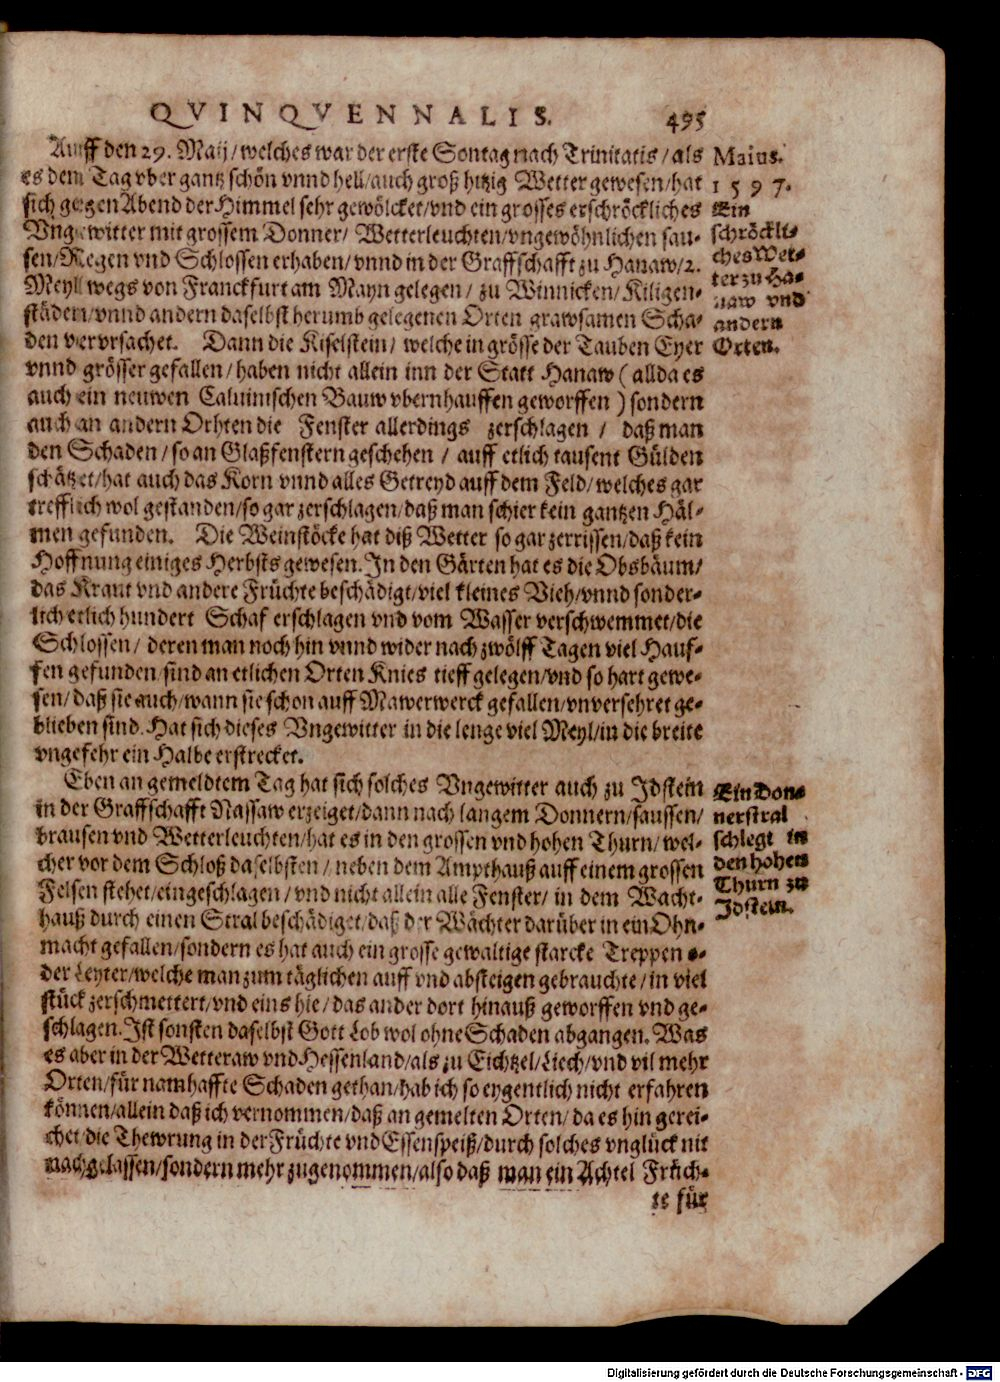 QVINQVENNALIS. 495
Auff den 29. Maij/welches war der erste Sontag nach Trinitatis/als
es dem Tag vber gantz schön vnnd hell/auch groß hitzig Wetter gewesen/hat
sich gegen Abend der Himmel sehr gewölcket/vnd ein grosses erschröckliches
Vngewitter mit grossem Donner/ Wetterleuchten/vngewöhnlichen sau-
sen/Regen vnd Schlossen erhaben/vnnd in der Graffschafft zu Hanaw/2.
Meyll wegs von Franckfurt am Mayn gelegen/ zu Winnicken/Kiligen-
städen/vnnd andern daselbst herumb gelegenen Orten grawsamen Scha-
den vervrsachet. Dann die Kiselstein/ welche in grösse der Tauben Eyer
vnnd grösser gefallen/haben nicht allein inn der Statt Hanaw (allda es
auch ein neuwen Caluinischen Bauw vbernhauffen geworffen) sondern
auch an andern Orhten die Fenster allerdings zerschlagen / daß man
den Schaden/so an Glaßfenstern geschehen / auff etlich tausent Gülden
schätzet/hat auch das Korn vnnd alles Getreyd auff dem Feld/welches gar
trefflich wol gestanden/so gar zerschlagen/daß man schier kein gantzen Häl-
men gefunden. Die Weinstöcke hat diß Wetter so gar zerrissen/daß kein
Hoffnung einiges Herbsts gewesen. In den Gärten hat es die Obsbäum/
das Kraut vnd andere Früchte beschädigt/viel kleines Vieh/vnnd sonder-
lich etlich hundert Schaf erschlagen vnd vom Wasser verschwemmet/die
Schlossen/ deren man noch hin vnnd wider nach zwölff Tagen viel Hauf-
fen gefunden/sind an etlichen Orten Knies tieff gelegen/vnd so hart gewe-
sen/daß sie auch/wann sie schon auff Mawerwerck gefallen/vnversehret ge-
blieben sind. Hat sich dieses Vngewitter in die lenge viel Meyl/in die breite
vngefehr ein Halbe erstrecket.
Maius.
1597.
Ein
schröckli-
ches Wet-
ter zu Ha-
naw vnd
andern
Orten.
Eben an gemeldtem Tag hat sich solches Vngewitter auch zu Idstein
in der Graffschafft Nassaw erzeiget/dann nach langem Donnern/saussen/
brausen vnd Wetterleuchten/hat es in den grossen vnd hohen Thurn/wel-
cher vor dem Schloß daselbsten/ neben dem Ampthauß auff einem grossen
Felsen stehet/eingeschlagen/vnd nicht allein alle Fenster/ in dem Wacht-
hauß durch einen Stral beschädiget/daß der Wächter darüber in ein Ohn-
macht gefallen/sondern es hat auch ein grosse gewaltige starcke Treppen o-
der Leyter/welche man zum täglichen auff vnd absteigen gebrauchte/in viel
stück zerschmettert/vnd eins hie/das ander dort hinauß geworffen vnd ge-
schlagen. Ist sonsten daselbst Gott Lob wol ohne Schaden abgangen. Was
es aber in der Wetteraw vnd Hessenland/als zu Eichtzel/Liech/vnd vil mehr
Orten/für namhaffte Schaden gethan/hab ich so eygentlich nicht erfahren
können/allein daß ich vernommen/daß an gemelten Orten/da es hin gerei-
chet/die Thewrung in der Früchte vnd Essenspeiß/durch solches vnglück nit
nachgelassen/sondern mehr zugenommen/also daß man ein Achtel Früch-
te für
Ein Don-
nerstral
schlegt in
den hohen
Thurn zu
Idstein.
Digitalisierung gefördert durch die Deutsche Forschungsgemeinschaft - DFG